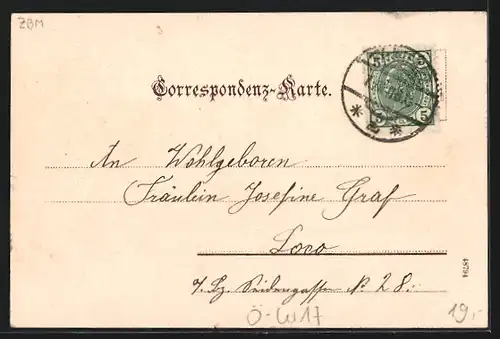 ZBM
3
Correspondenz-Karte.
5 5
An Wohlgeboren
Fräulein Josefine Graf
Loco
7. Bz. Seidengasse No 28.
48794
Ö-W17 19,-